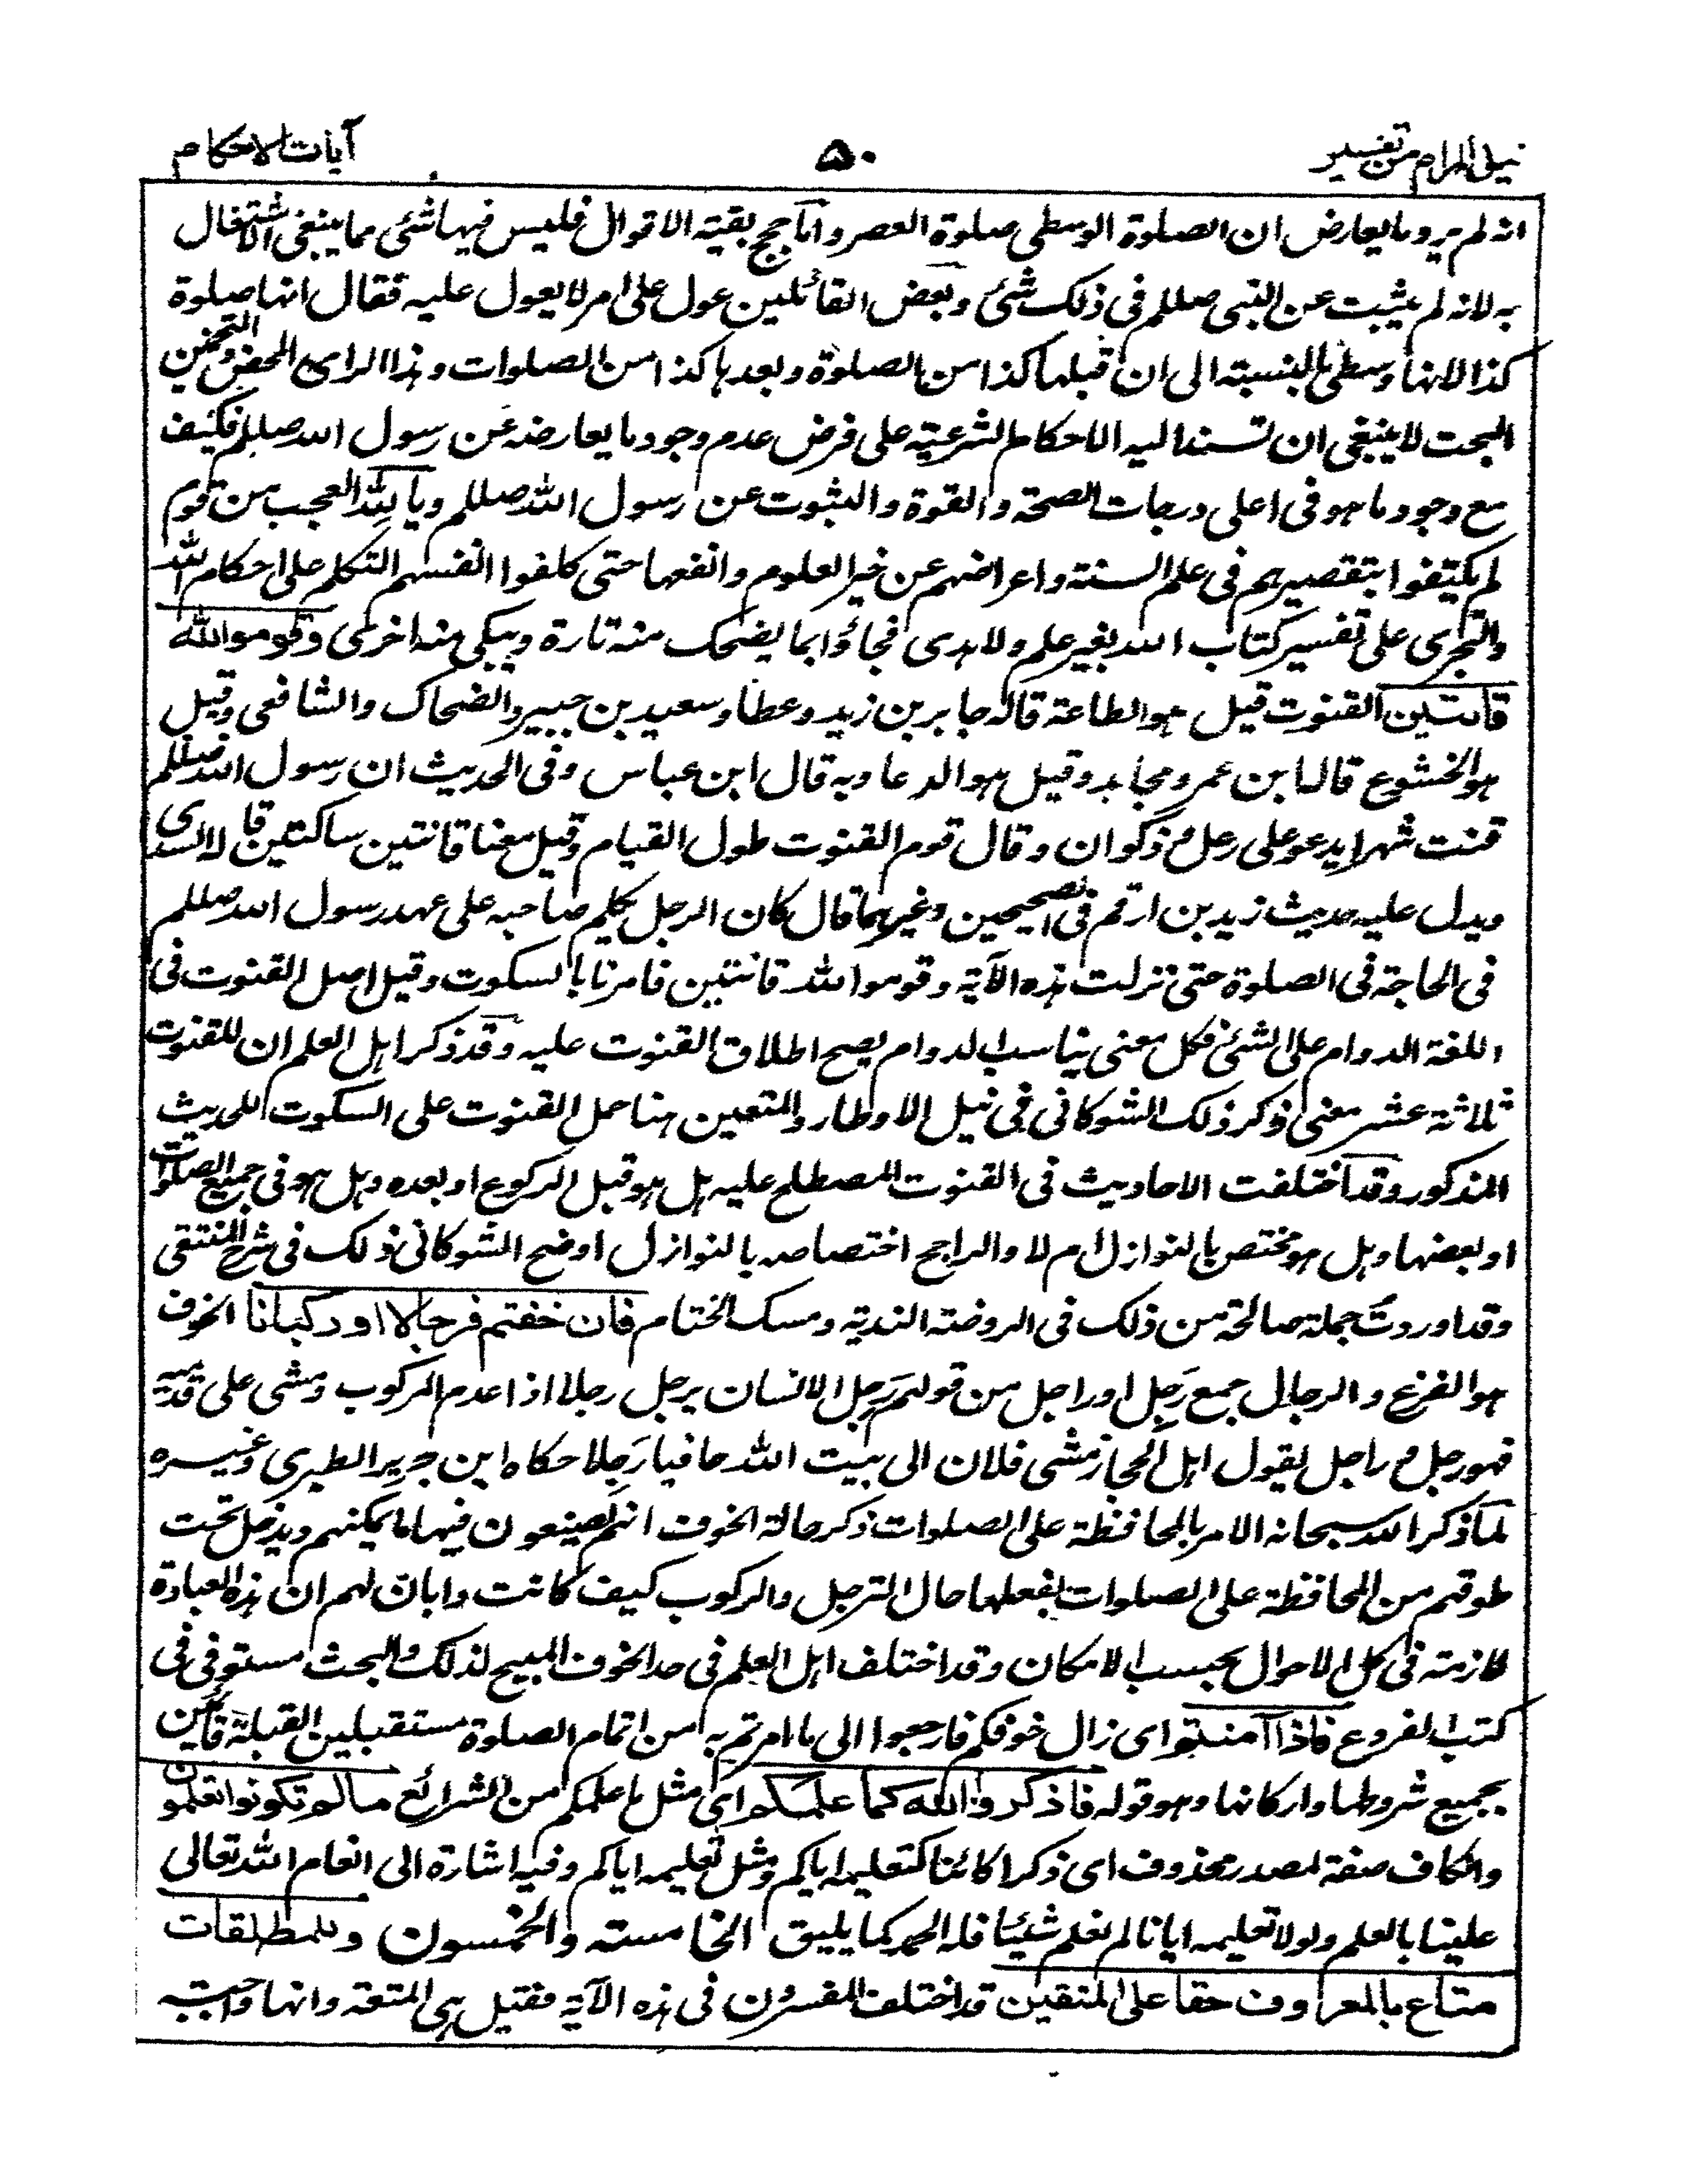 نيل المرام من تفسير
٥٠
آيات الاحكام
انه لم يرو ما يعارض ان الصلوة الوسطى صلوة العصر واما حجج بقية الاقوال فليس فيها شئ مما ينبغى الاشتغال
به لانه لم يثبت عن النبى صللم فى ذلك شئ وبعض القائلين عول على امر لا يعول عليه فقال انها صلوة
كذا لانها وسطى بالنسبة الى ان قبلها كذا من الصلوة وبعدها كذا من الصلوات وهذا الراى المحض والتخمين
البحت لا ينبغى ان تسند اليه الاحكام الشرعية على فرض عدم وجود ما يعارضه عن رسول الله صللم فكيف
مع وجود ما هو فى اعلى درجات الصحة والقوة والثبوت عن رسول الله صللم ويا لله العجب من قوم
لم يكتفوا بتقصيرهم فى علم السنة واعراضهم عن خير العلوم وانفعها حتى كلفوا انفسهم التكلم على احكام الله
والتجرى على تفسير كتاب الله بغير علم ولا هدى فجاؤا بما يضحك منه تارة ويبكى منه اخرى وقوموا لله
قانتين القنوت قيل هو الطاعة قاله جابر بن زيد وعطا وسعيد بن جبير والضحاك والشافعى وقيل
هو الخشوع قاله ابن عمر ومجاهد وقيل هو الدعا وبه قال ابن عباس وفى الحديث ان رسول الله صللم
قنت شهرا يدعو على رعل وذكوان وقال قوم القنوت طول القيام وقيل معناه قانتين ساكتين قاله السدى
ويدل عليه حديث زيد بن ارقم فى الصحيحين وغيرهما قال كان الرجل يكلم صاحبه على عهد رسول الله صللم
فى الحاجة فى الصلوة حتى نزلت هذه الآية وقوموا لله قانتين فامرنا بالسكوت وقيل اصل القنوت فى
اللغة الدوام على الشئ فكل معنى يناسب الدوام يصح اطلاق القنوت عليه وقد ذكر اهل العلم ان للقنوت
ثلاثة عشر معنى ذكر ذلك الشوكانى فى نيل الاوطار والمتعين هنا حمل القنوت على السكوت للحديث
المذكور وقد اختلفت الاحاديث فى القنوت المصطلح عليه هل هو قبل الركوع او بعده وهل هو فى جميع الصلوات
او بعضها وهل هو مختص بالنوازل ام لا والراجح اختصاصه بالنوازل اوضح الشوكانى ذلك فى شرح المنتقى
وقد اوردت جملة صالحة من ذلك فى الروضة الندية ومسك الختام فان خفتم فرجالا او ركبانا الخوف
هو الفزع والرجال جمع رَجِل او راجل من قولهم رَجِل الانسان يرجل رجلا اذا عدم المركوب ومشى على قدميه
فهو رجل وراجل يقول اهل الحجاز مشى فلان الى بيت الله حافيا رَجِلا حكاه ابن جرير الطبرى وغيره
لما ذكر الله سبحانه الامر بالمحافظة على الصلوات ذكر حالة الخوف انهم يصنعون فيها ما يمكنهم ويدخل تحت
طوقهم من المحافظة على الصلوات بفعلها حال الترجل والركوب كيف كانت وابان لهم ان هذه العبادة
لازمة فى كل الاحوال بحسب الامكان وقد اختلف اهل العلم فى حد الخوف المبيح لذلك والبحث مستوفى فى
كتب الفروع فاذا آمنتم اى زال خوفكم فارجعوا الى ما امرتم به من اتمام الصلوة مستقبلين القبلة قائمين
بجميع شروطها واركانها وهو قوله فاذكروا الله كما علمكم اى مثل ما علمكم من الشرائع مالم تكونوا تعلمون
والكاف صفة لمصدر محذوف اى ذكرا كائنا كتعليمه اياكم ومثل تعليمه اياكم وفيه اشارة الى انعام الله تعالى
علينا بالعلم ولولا تعليمه ايانا لم نعلم شيئا فله الحمد كما يليق الخامسة والخمسون وللمطلقات
متاع بالمعروف حقا على المتقين قد اختلف المفسرون فى هذه الآية فقيل هى المتعة وانها واجبة